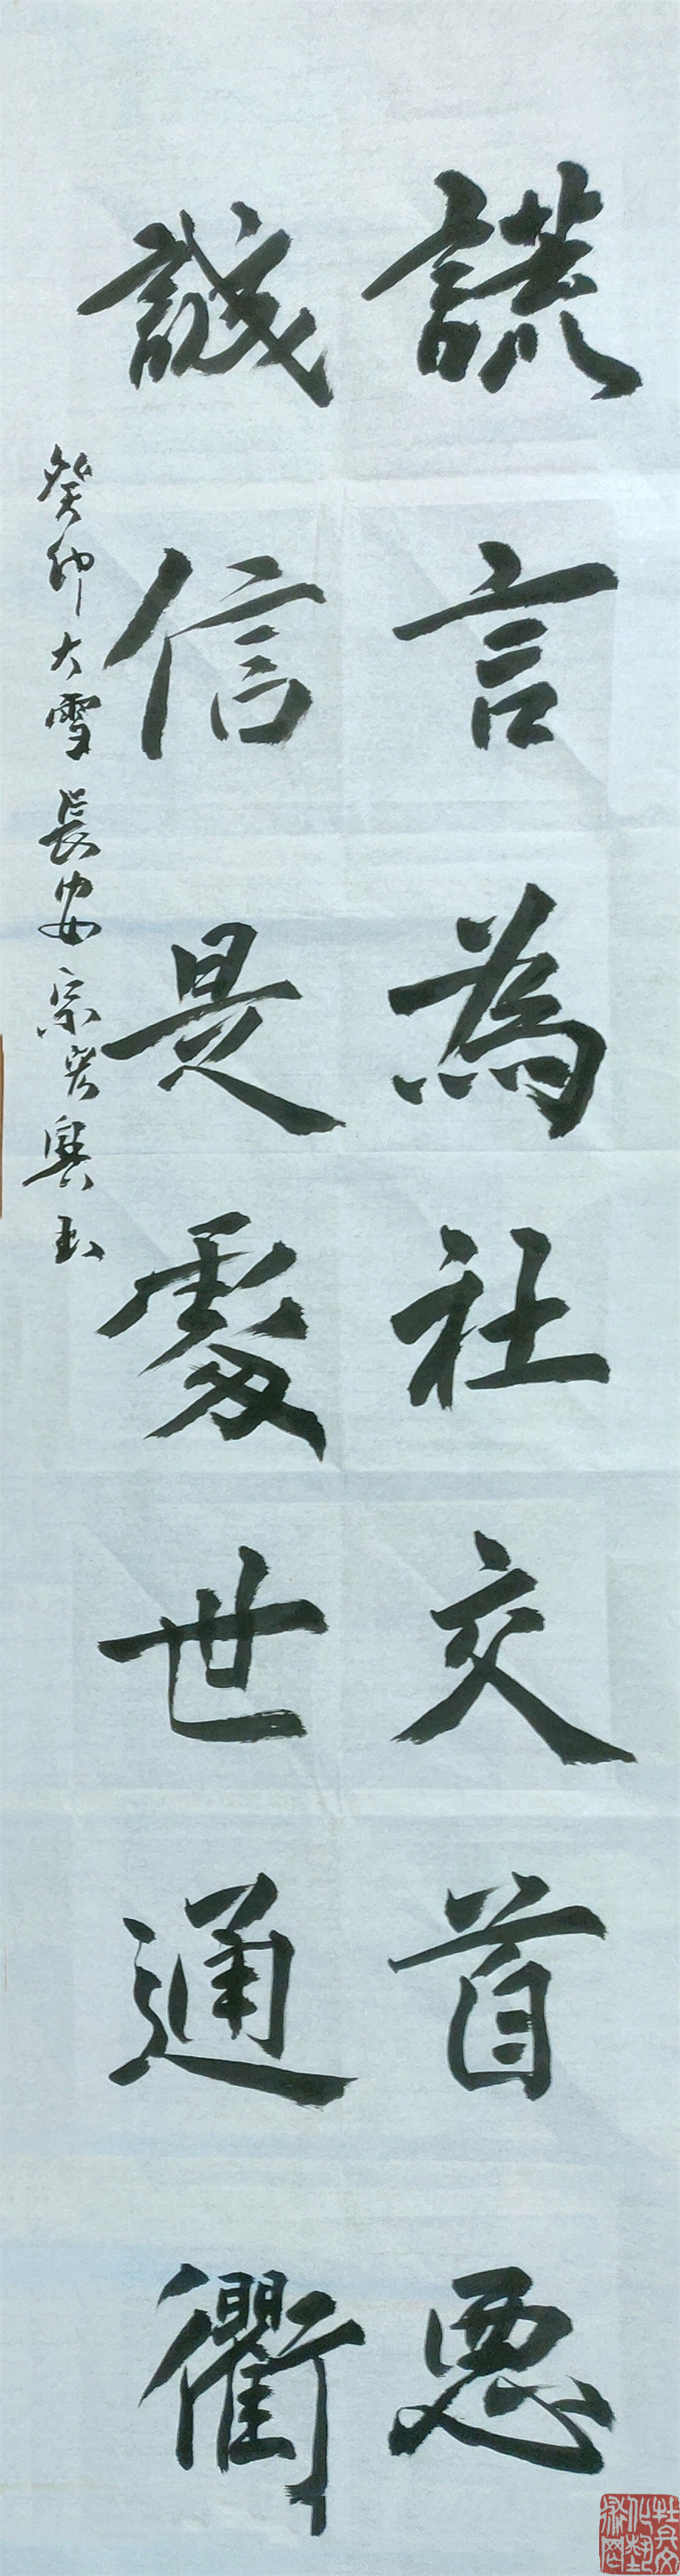 謊言為社交首惡
誠信是處世通衢
癸卯大雪長安宗